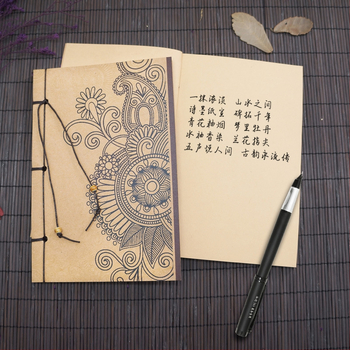 一抹浅淡 山水之间
诗墨纸鸢 碑拓千年
青花釉烟 梦里牡丹
水袖香染 兰花指尖
五声悦人间 古韵永流传